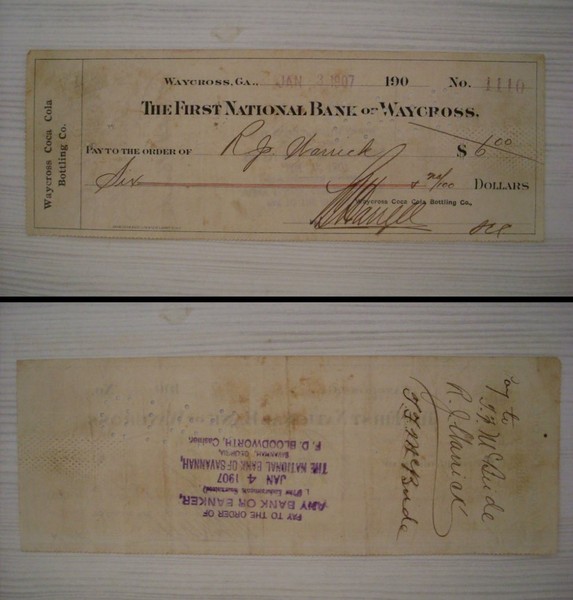 Waycross Coca Cola
Bottling Co.
WAYCROSS, GA., JAN 3 1907 190 No. 1110
THE FIRST NATIONAL BANK OF WAYCROSS.
PAY TO THE ORDER OF R J Warrick $ 6 00
Six & no/100 DOLLARS
Waycross Coca Cola Bottling Co.,
Pay to
T. F. McBride
R. J. Warrick
T F McBride
PAY TO THE ORDER OF
ANY BANK OR BANKER,
(Prior Endorsements Guaranteed)
JAN 4 1907
THE NATIONAL BANK OF SAVANNAH,
SAVANNAH, GEORGIA.
F. D. BLOODWORTH, Cashier.